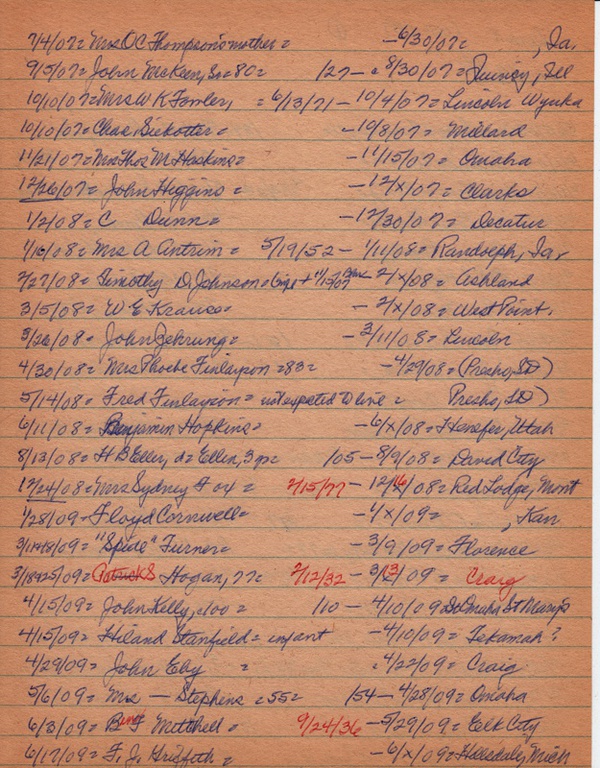 7/4/07= Mrs OC Thompson's mother = -6/30/07= , Ia.
9/5/07= John McKeen, Sr=80= /27- 8/30/07= Quincy, Ill
10/10/07= Mrs W K Fowler, = 6/13/71- 10/4/07= Lincoln Wyuka
10/10/07= Chas Siekotter= -10/8/07= Millard
11/21/07= Mrs Thos M Haskins= -11/15/07= Omaha
12/26/07= John Higgins= -12/x/07= Clarks
1/2/08= C Dunn= -12/30/07= Decatur
1/16/08= Mrs A Antrim= 5/19/52- 1/11/08= Randolph, Ia,
2/27/08= Timothy D. Johnson= + 11/15/07 2/x/08= Ashland
3/5/08= W E Krause= -2/x/08= West Point.
3/26/08= John Gehrung= -3/11/08= Lincoln
4/30/08= Mrs Phoebe Finlayson =83= -4/29/08= (Presho, SD)
5/14/08= Fred Finlayson= unexpected to live = Presho, SD)
6/11/08= Benjamin Hopkins= -6/x/08= Henefer, Utah
8/13/08= H B Eller, d= Ellen, 3 /05-8/9/08= David City
12/24/08= Mrs Sydney Fox = 2/15/77- 12/16/08= Red Lodge, Mont
1/28/09= Floyd Cornwell= -1/x/09= , Kan
3/11+18/09= "Spide" Turner= -3/9/09= Florence
3/18+25/09= Patrick S Hogan, 77= 2/12/32- 3/13/09= Craig
4/15/09= John Kelly, c100= /10- 4/10/09 Omaha St Mary's
4/15/09= Hiland Stanfield= infant -4/10/09= Tekamah?
4/29/09= John Eby = 4/22/09= Craig
5/6/09= Mrs — Stephens =55= /54-4/28/09= Omaha
6/3/09= Benj F Mitchell= 9/24/36-5/29/09= Elk City
6/17/09= F. J. Griffeth= -6/x/09= Hillsdale, Mich